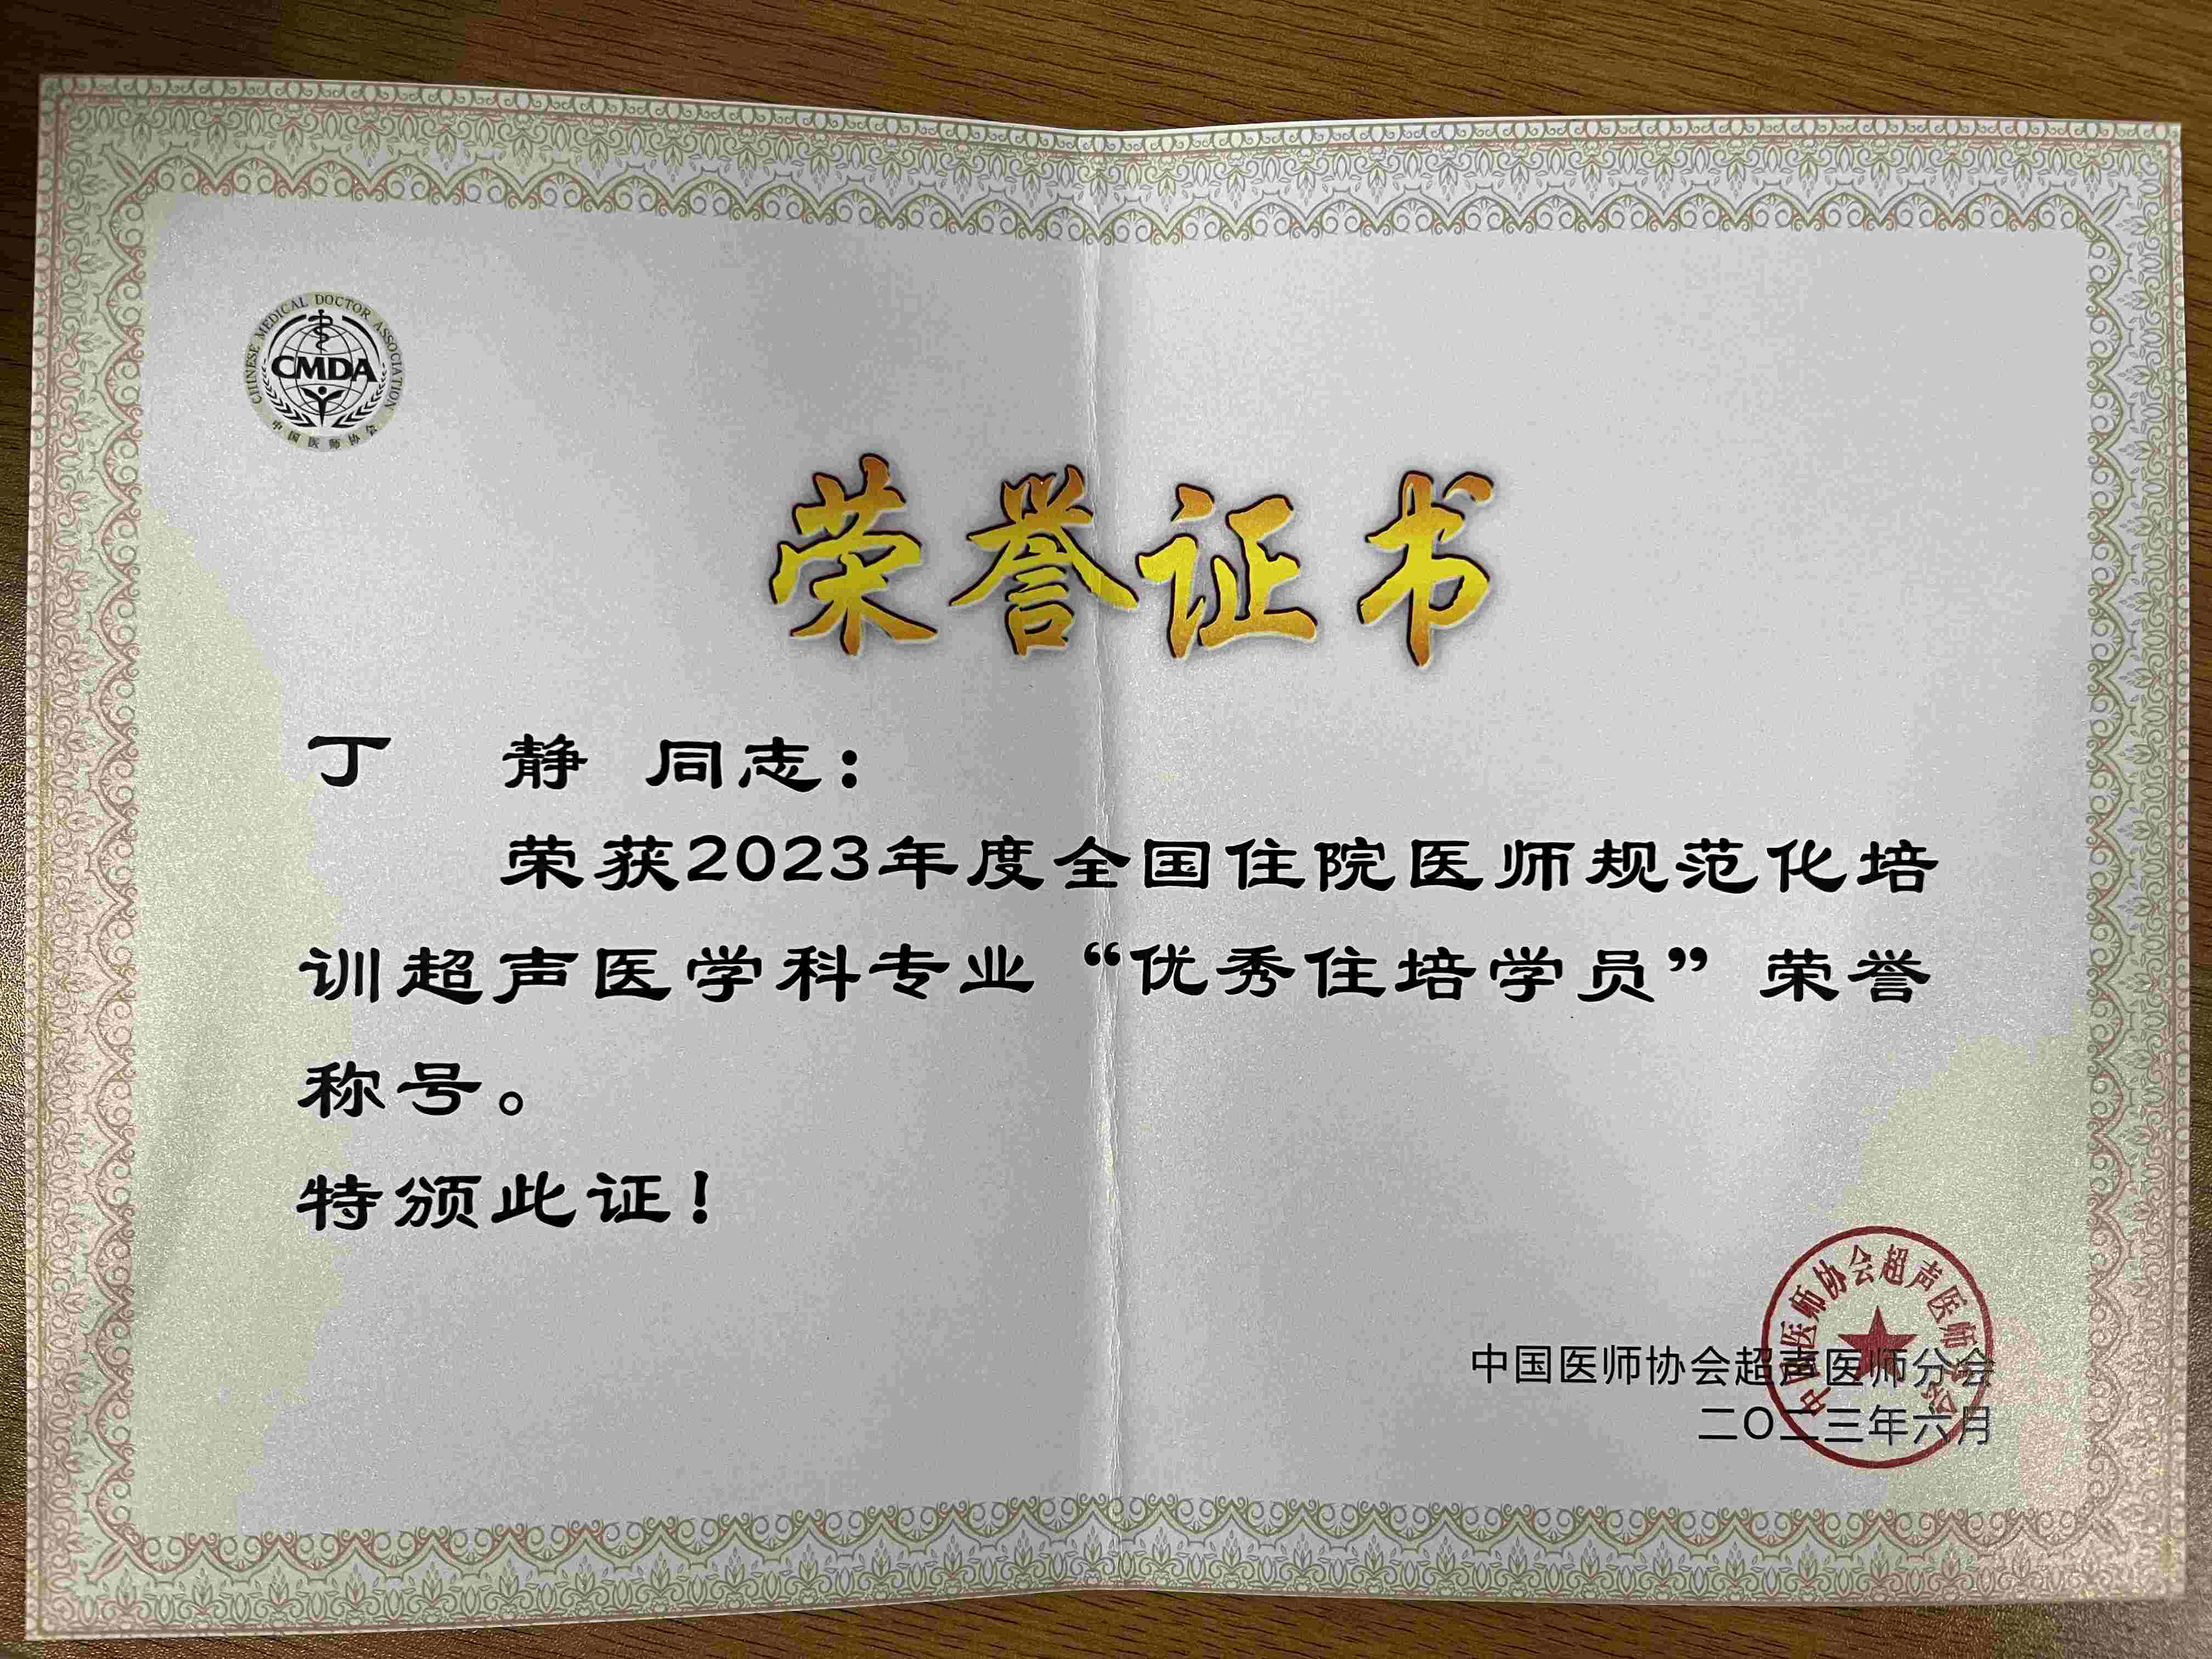 CHINESE MEDICAL DOCTOR ASSOCIATION
CMDA
中国医师协会
荣誉证书
丁 静 同志：
荣获2023年度全国住院医师规范化培
训超声医学科专业“优秀住培学员”荣誉
称号。
特颁此证！
中国医师协会超声医师分会
中国医师协会超声医师分会
二〇二三年六月